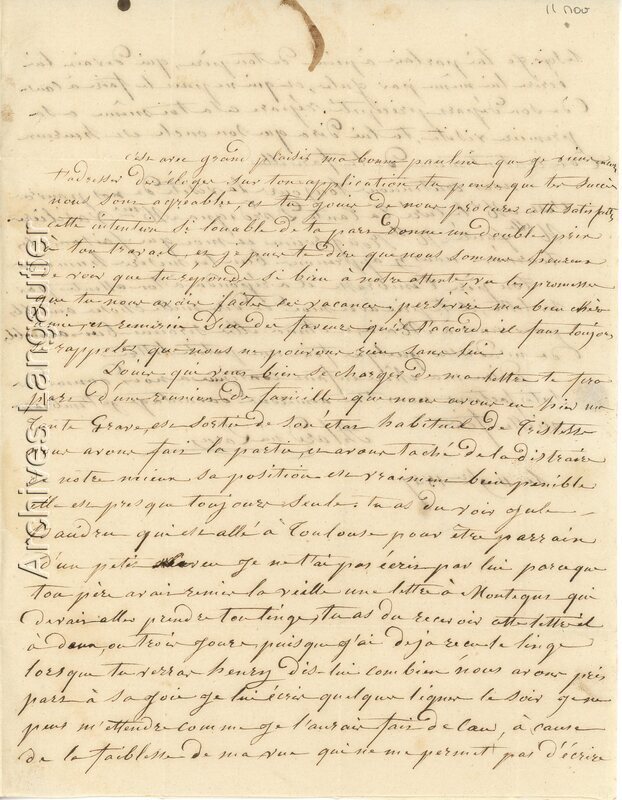 11 nov
c'est avec grand plaisir ma bonne pauline que je viens encore
t'adresser des éloges sur ton application, tu pense que tes succes
nous sont agréable et tu jouis de nous procurer cette satisfaction
cette intention si louable de ta part donne un double prix
a ton travail, et je puis te dire que nous sommes heureux
de voir que tu reponde si bien à notre attente, vu les promesses
que tu nous avais faites les vacances, persevere ma bien chère
amie, et remercie Dieu des faveurs qu'il t'accorde il faut toujours
rappeler que nous ne pouvons rien sans lui
Louis que veux bien se charger de ma lettre te fera
part d'une reunion de famille que nous avons eu hier ma
tante Grave est sortie de son état habituel de tristesse
nous avons fait la partie, et avons taché de la distraire
de notre mieux sa position est vraiment bien penible
elle est presque toujours seule, tu as du voir jule
qui est allé à Toulouse pour être parrain
d'un petit je ne t'ai pas écris par lui parceque
ton père avait remis la veille une lettre à Montegus qui
devait aller prendre ton linge, tu as du recevoir cette lettre il
à deux ou trois jours, puisque j'ai deja recu le linge
lorsque tu verras henry dis-lui combien nous avons pris
part à sa joie je lui écris quelques lignes le soir je ne
peus m'ettendre comme je l'aurais fait de , à cause
de la faiblesse de ma vue qui ne me permet pas d'écrire
Archives Langautier